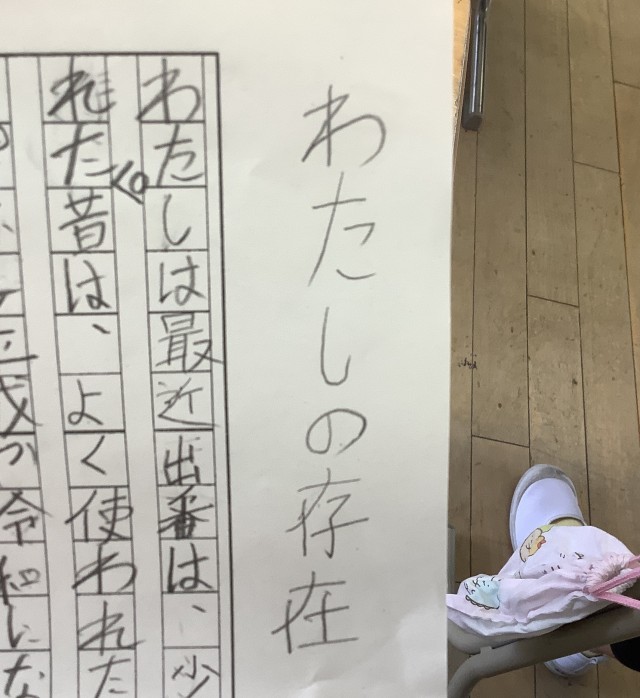 わたしの存在
わたしは最近出番は、少
れた。昔は、よく使われた
令和にな